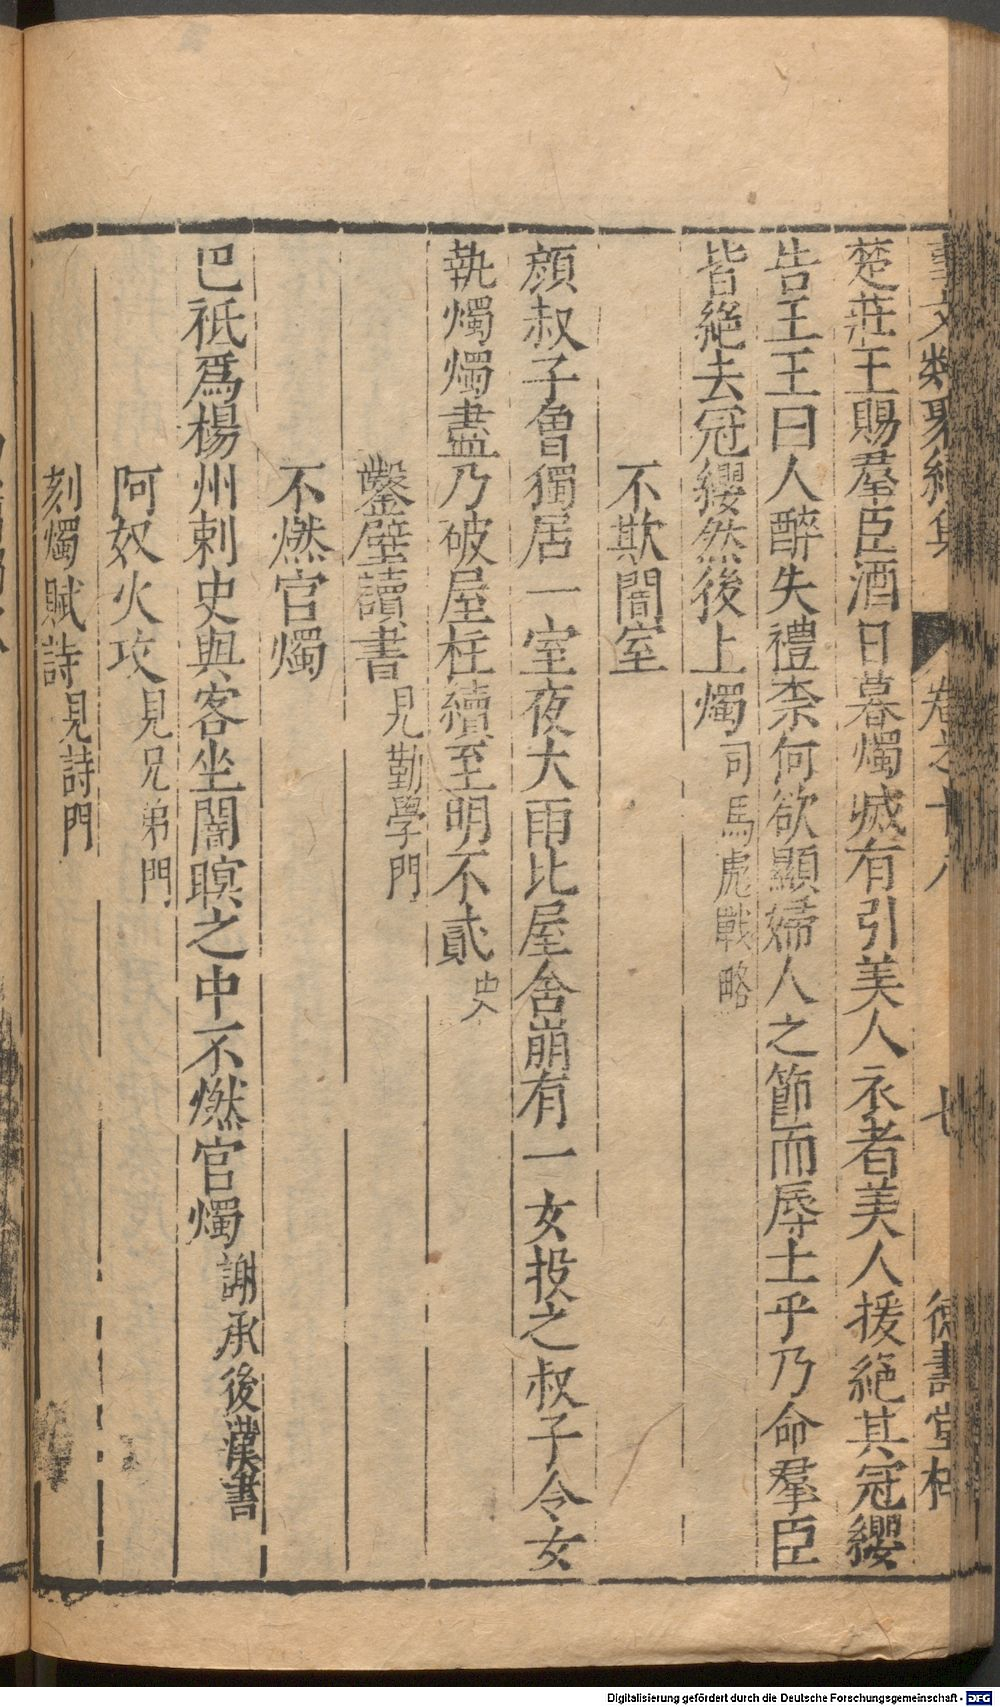 楚莊王賜羣臣酒日暮燭滅有引美人衣者美人援絕其冠纓
告王王曰人醉失禮柰何欲顯婦人之節而辱士乎乃命羣臣
皆絕去冠纓然後上燭司馬彪戰略
不欺闇室
顔叔子魯獨居一室夜大雨比屋舍崩有一女投之叔子令女
執燭燭盡乃破屋柱續至明不貳史
鑿壁讀書見勤學門
不燃官燭
巴祗爲楊州刺史與客坐闇暝之中不燃官燭謝承後漢書
阿奴火攻見兄弟門
刻燭賦詩見詩門
Digitalisierung gefördert durch die Deutsche Forschungsgemeinschaft - DFG